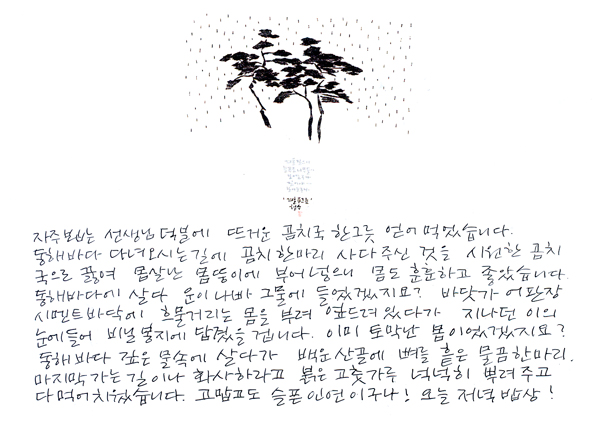 자주 보는 선생님 덕분에 뜨거운 곰치국 한그릇 얻어 먹었습니다.
동해바다 다녀오시는길에 곰치 한마리 사다 주신 것을 시원한 곰치
국으로 끓여 몸살난 몸뚱이에 부어 넣으니 몸도 훈훈하고 좋았습니다.
동해바다에 살다 운이 나빠 그물에 들었겠지요? 바닷가 어판장
시멘트 바닥에 흐물거리는 몸을 부려 엎드려 있다가 지나던 이의
눈에 들어 비닐봉지에 담겼을 겁니다. 이미 토막난 몸이었겠지요?
동해 바다 깊은 물속에 살다가 백운산골에 뼈를 흩은 물곰 한마리.
마지막 가는 길이나 화사하라고 붉은 고춧가루 넉넉히 뿌려 주고
다 먹어 치웠습니다. 고맙고도 슬픈 인연이구나! 오늘 저녁 밥상!